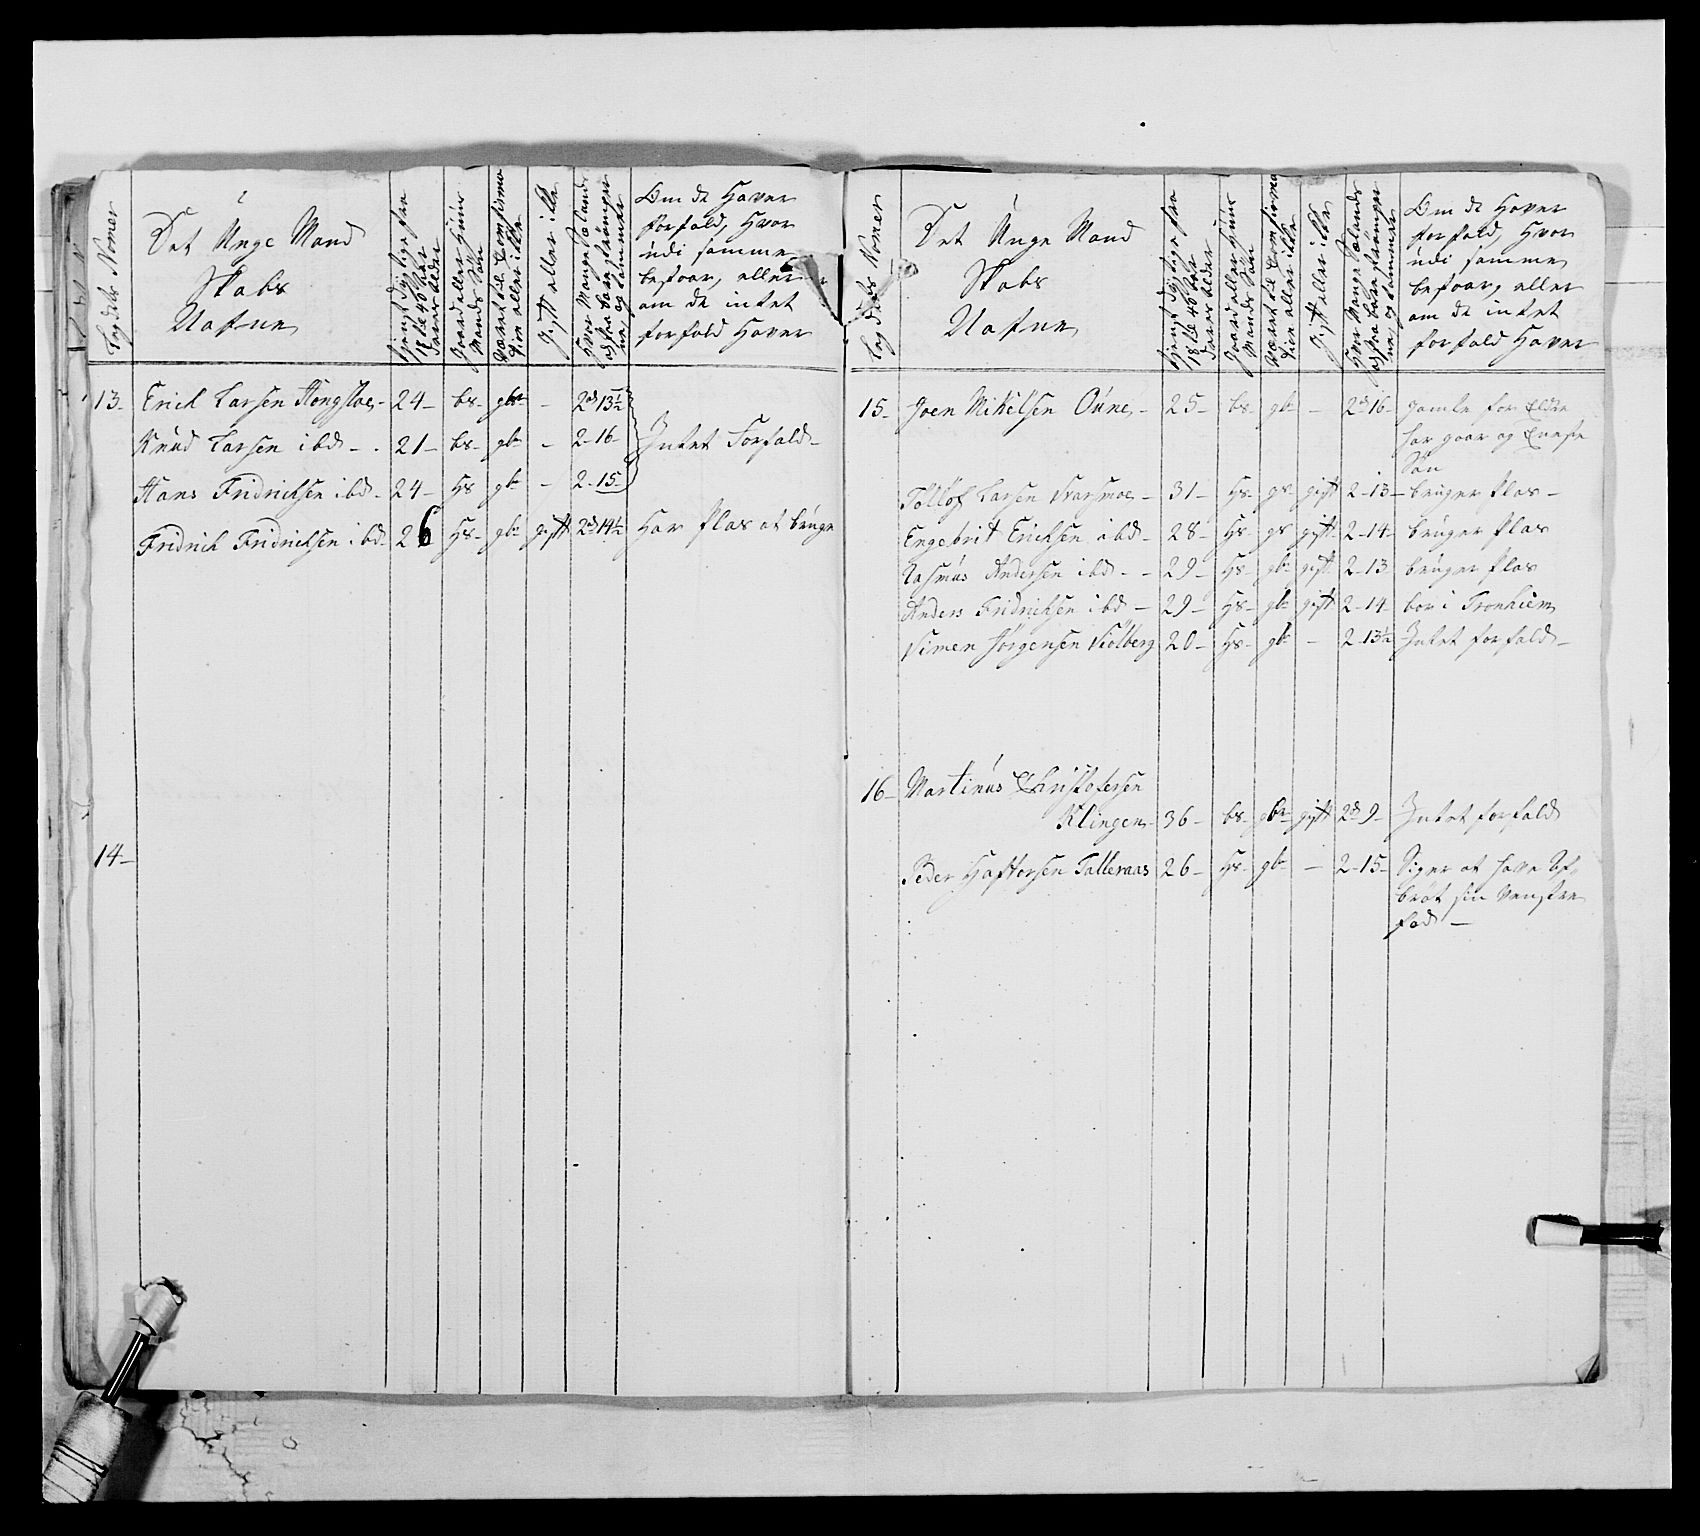 Legdets Nomer
Det Unge Mand
Skabs
Nafne
Om de Haver
forfald, Hvor
udi samme
bestaar, eller
om de intet
forfald Haver
gift eller ikke
13- Erich Larsen Hongsloe- 24- bs- gbr - 2al 13½
Knud Larsen ibd - 21- bs- gb- - 2-16- Intet Forfald-
Hans Fridrichsen ibd- 24- Hs gb- - 2-15-
Fridrich Fridrichsen ibd- 26 Hs- gb- gift 2al 14½ Har Plas at bruge
14-
Legdets Nomer
Det Unge Mand
Skabs
Nafne
gift eller ikke
Om de Haver
forfald, Hvor
udi samme
bestaar, eller
om de intet
forfald Haver
15- Joen Mikelsen Oune- 25- bs- gb- - 2al 16- gamle for Eldre
har gaar og Eneste
Søn
Tolløf Larsen 31- Hs- gb- gift 2-13- bruger Plas-
Engebrit Ericksen ibd- 28- Hs- gb gift 2-14- bruger Plas
Rasmus Andersen ibd - - 29- Hs- gb- gift 2-13 bruger Plas
Anders Fridrichsen ibd - 29- Hs- gb- gift 2-14- bor i Tronhiem
Simen Jørgensen 20- Hs- gb - 2-13½ Intet forfald-
16- Martinus Christofersen
Klingen- 36- bs- gbr- gift 2al 9- Intet forfald
Peder Haftorsen Talleraas 26- Hs- gb- - 2-15- Siger at have Af-
brøt sin venstre
fod-